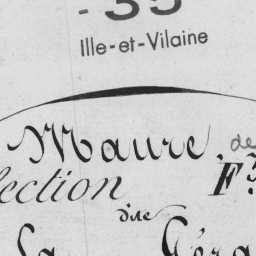 - 35
Ille-et-Vilaine
Maure de
lection F
dite
La Géra